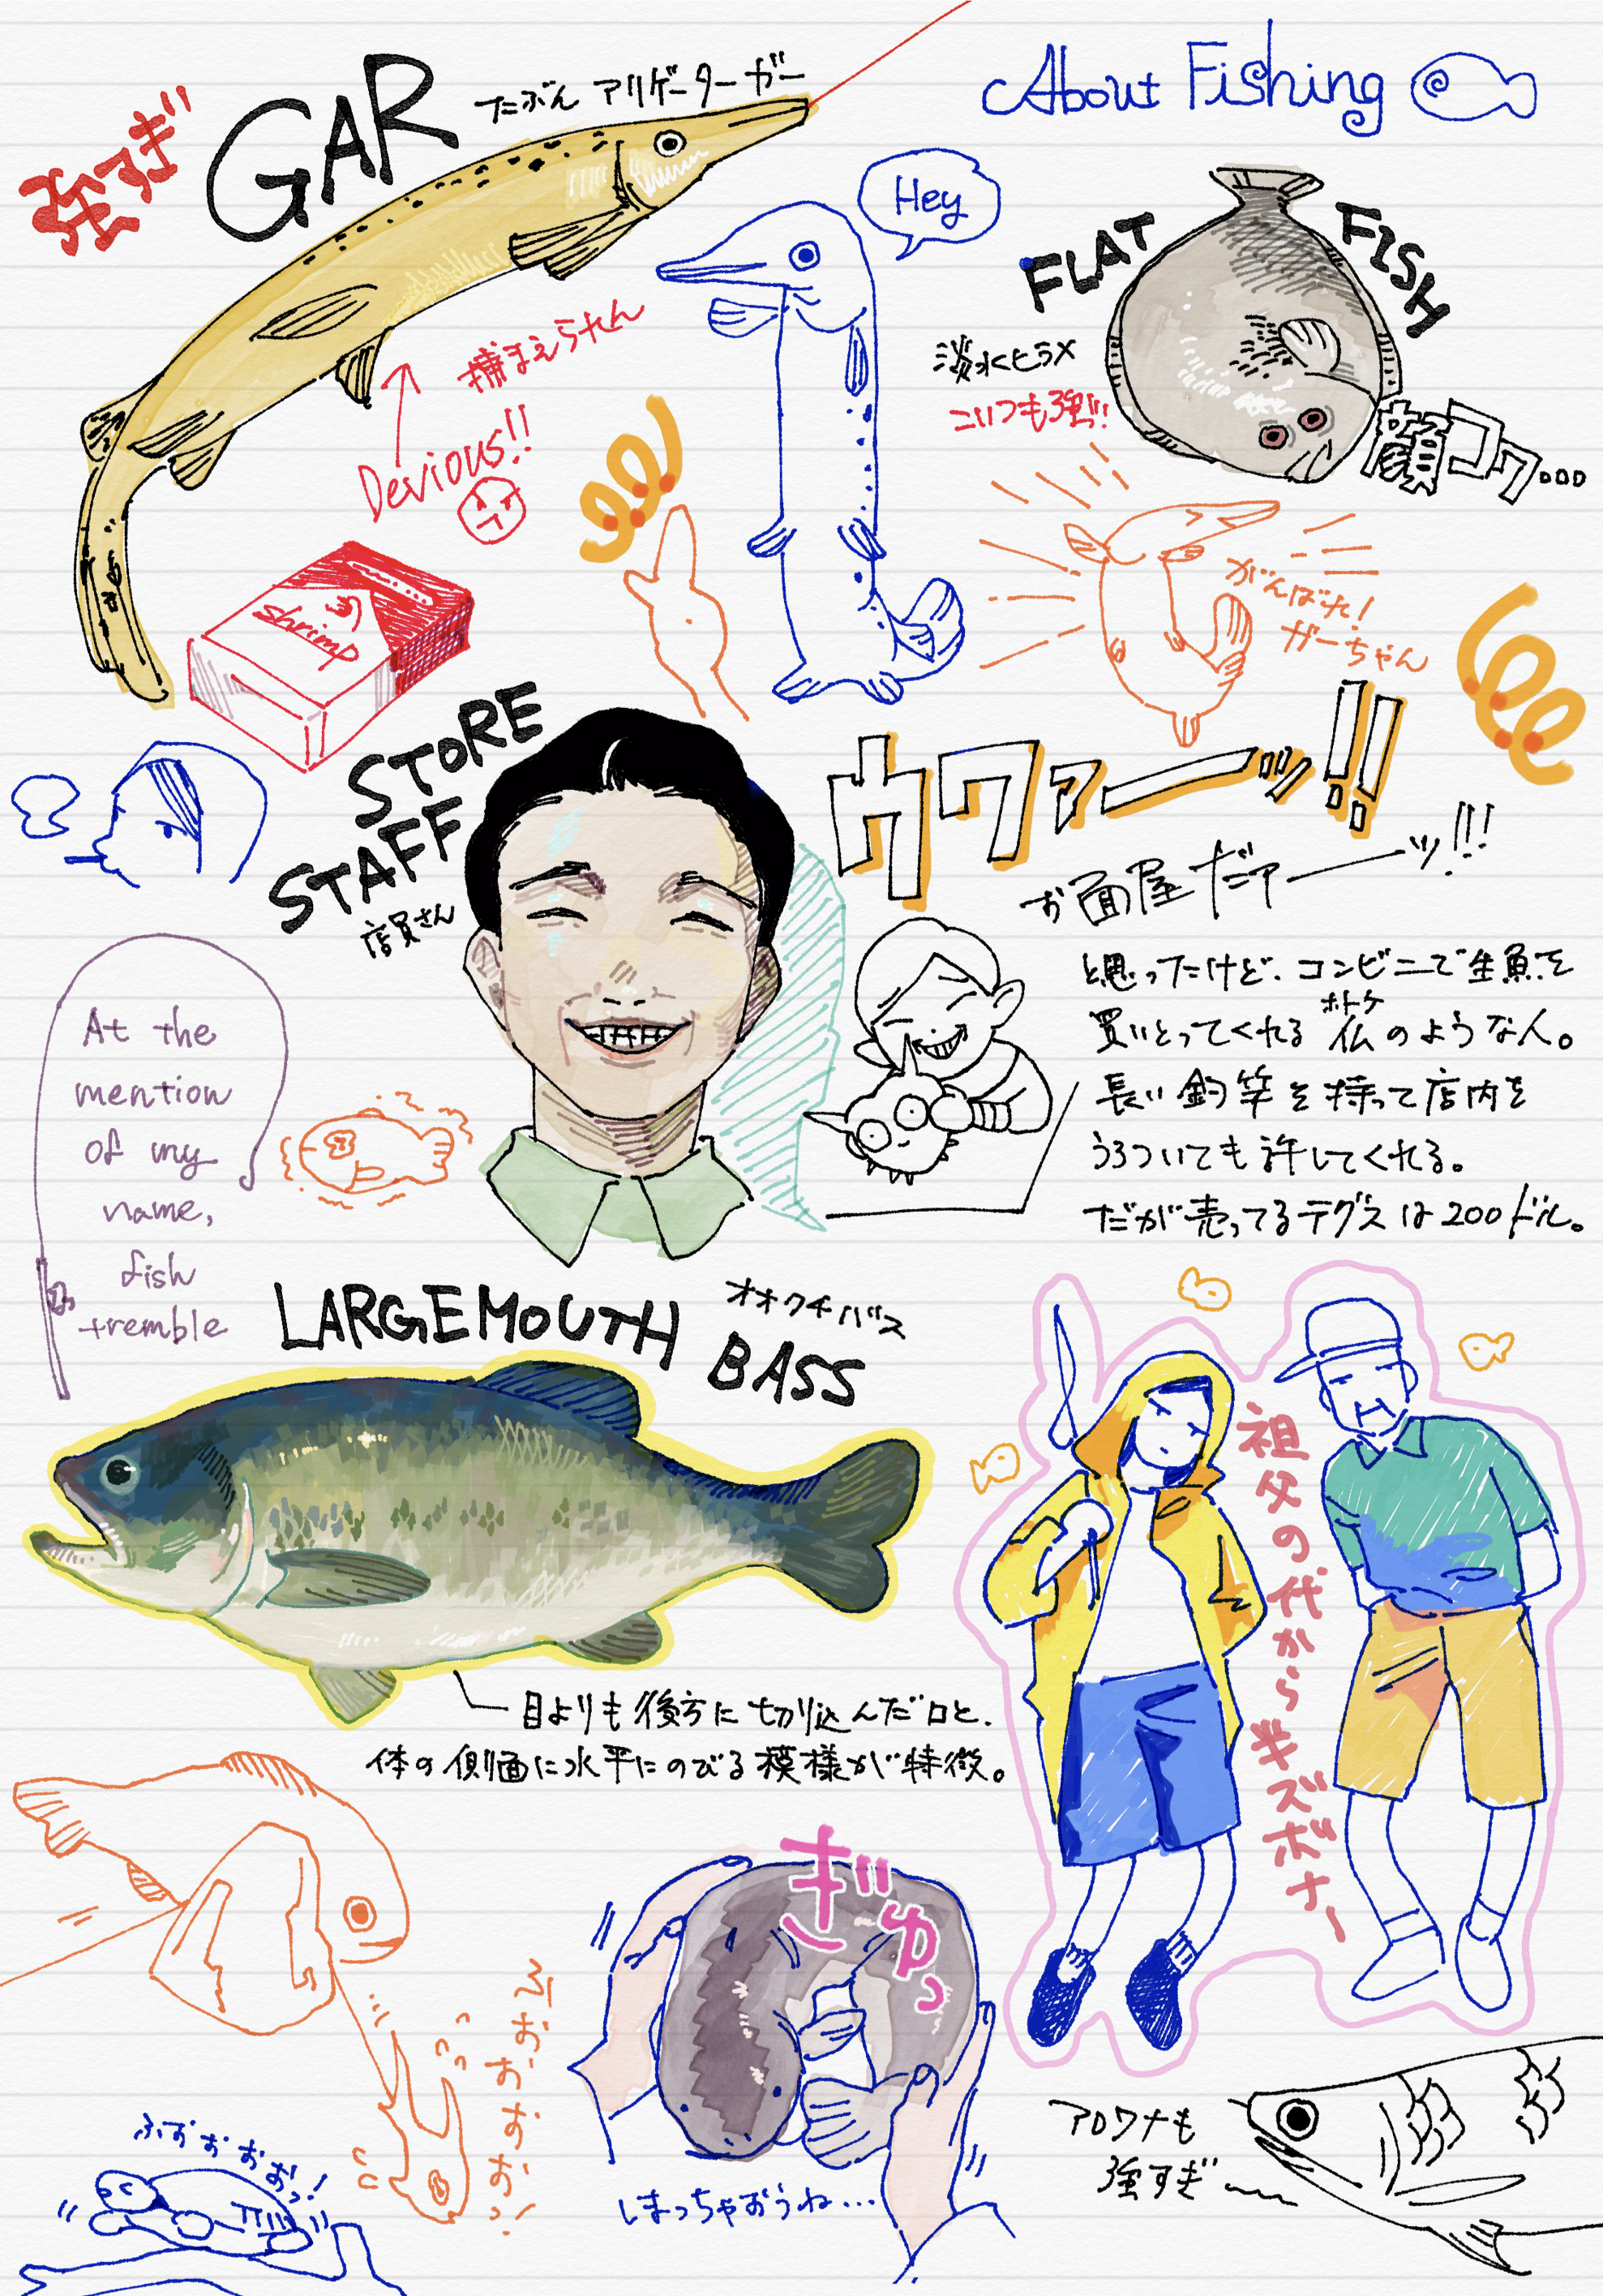 About Fishing
強すぎ
GAR
たぶん アリゲーターガー
Hey
FLAT FISH
淡水ヒラメ
こいつも強ッ!!
顔コワ...
捕まえられん
Devious!!
Shrimp
がんばれ!
ガーちゃん
STORE
STAFF
店員さん
ウワァーッ!!
お面屋だァーッ!!!
と思ったけど、コンビニで生魚を
買いとってくれる 仏のような人。
ホトケ
長い釣竿を持って店内を
うろついても許してくれる。
だが売ってるテグスは200ドル。
At the
mention
of my
name,
fish
tremble
LARGEMOUTH
BASS
オオクチバス
目よりも後方に切り込んだ口と、
体の側面に水平にのびる模様が特徴。
祖父の代から半ズボナー
ぎゅっ
しまっちゃおうね...
ふおおおおおっ!
ふおおおおっ!
アロワナも
強すぎ〜